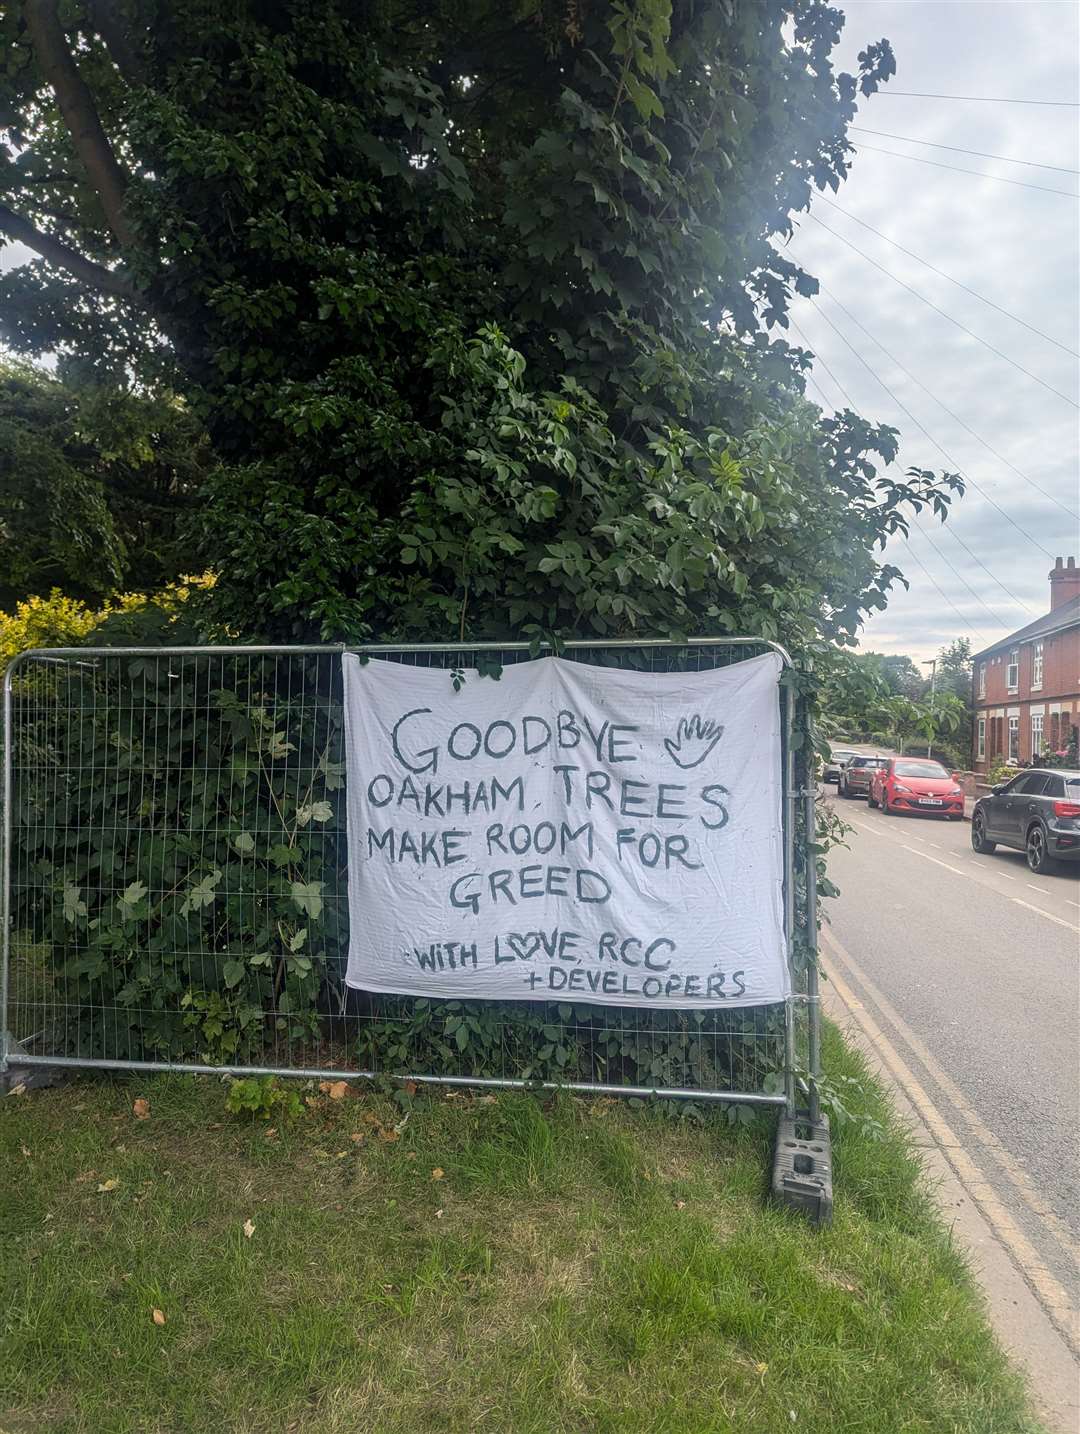 GOODBYE
OAKHAM TREES
MAKE ROOM FOR
GREED
WITH LOVE, RCC
+DEVELOPERS